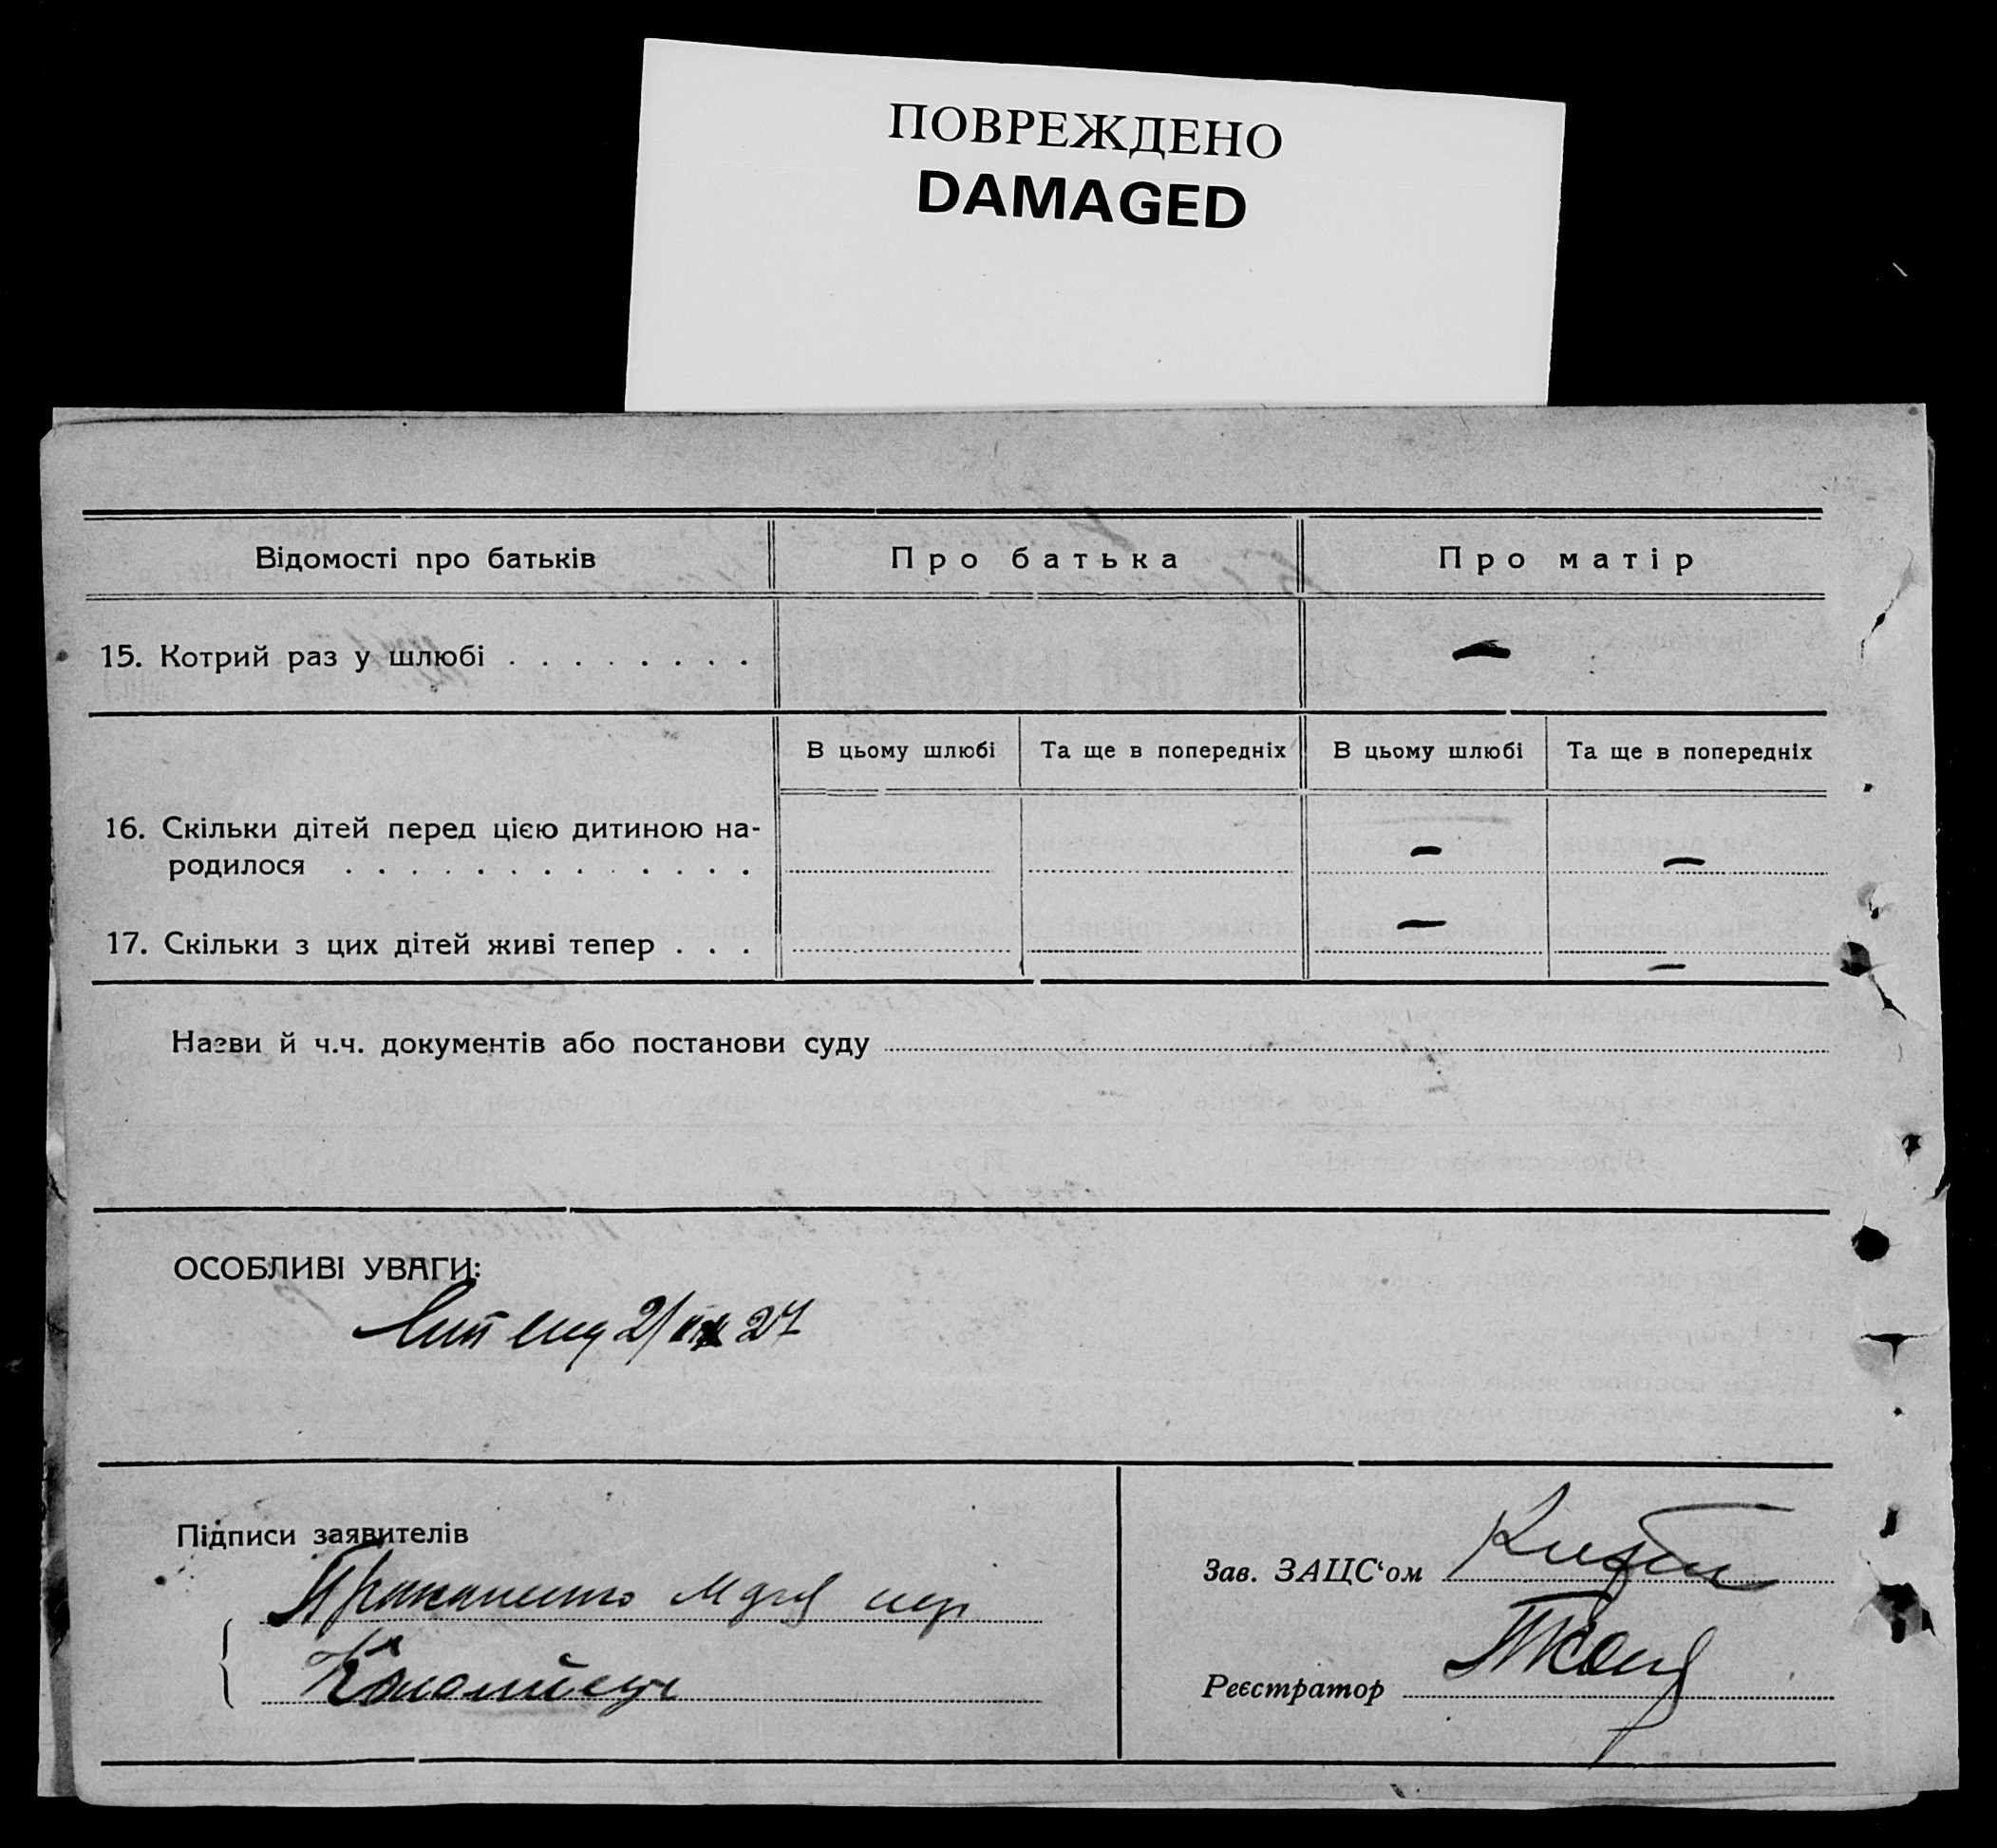 ПОВРЕЖДЕНО
DAMAGED
Відомості про батьків Про батька Про матір
15. Котрий раз у шлюбі . . . . . . . . —
В цьому шлюбі Та ще в попередніх В цьому шлюбі Та ще в попередніх
16. Скільки дітей перед цією дитиною на-
родилося . . . . . . . . . . . . . — —
17. Скільки з цих дітей живі тепер . . . — —
Назви й ч.ч. документів або постанови суду
ОСОБЛИВІ УВАГИ:
27
Підписи заявителів
Зав. ЗАЦС‘ом
Коломієць
Реєстратор